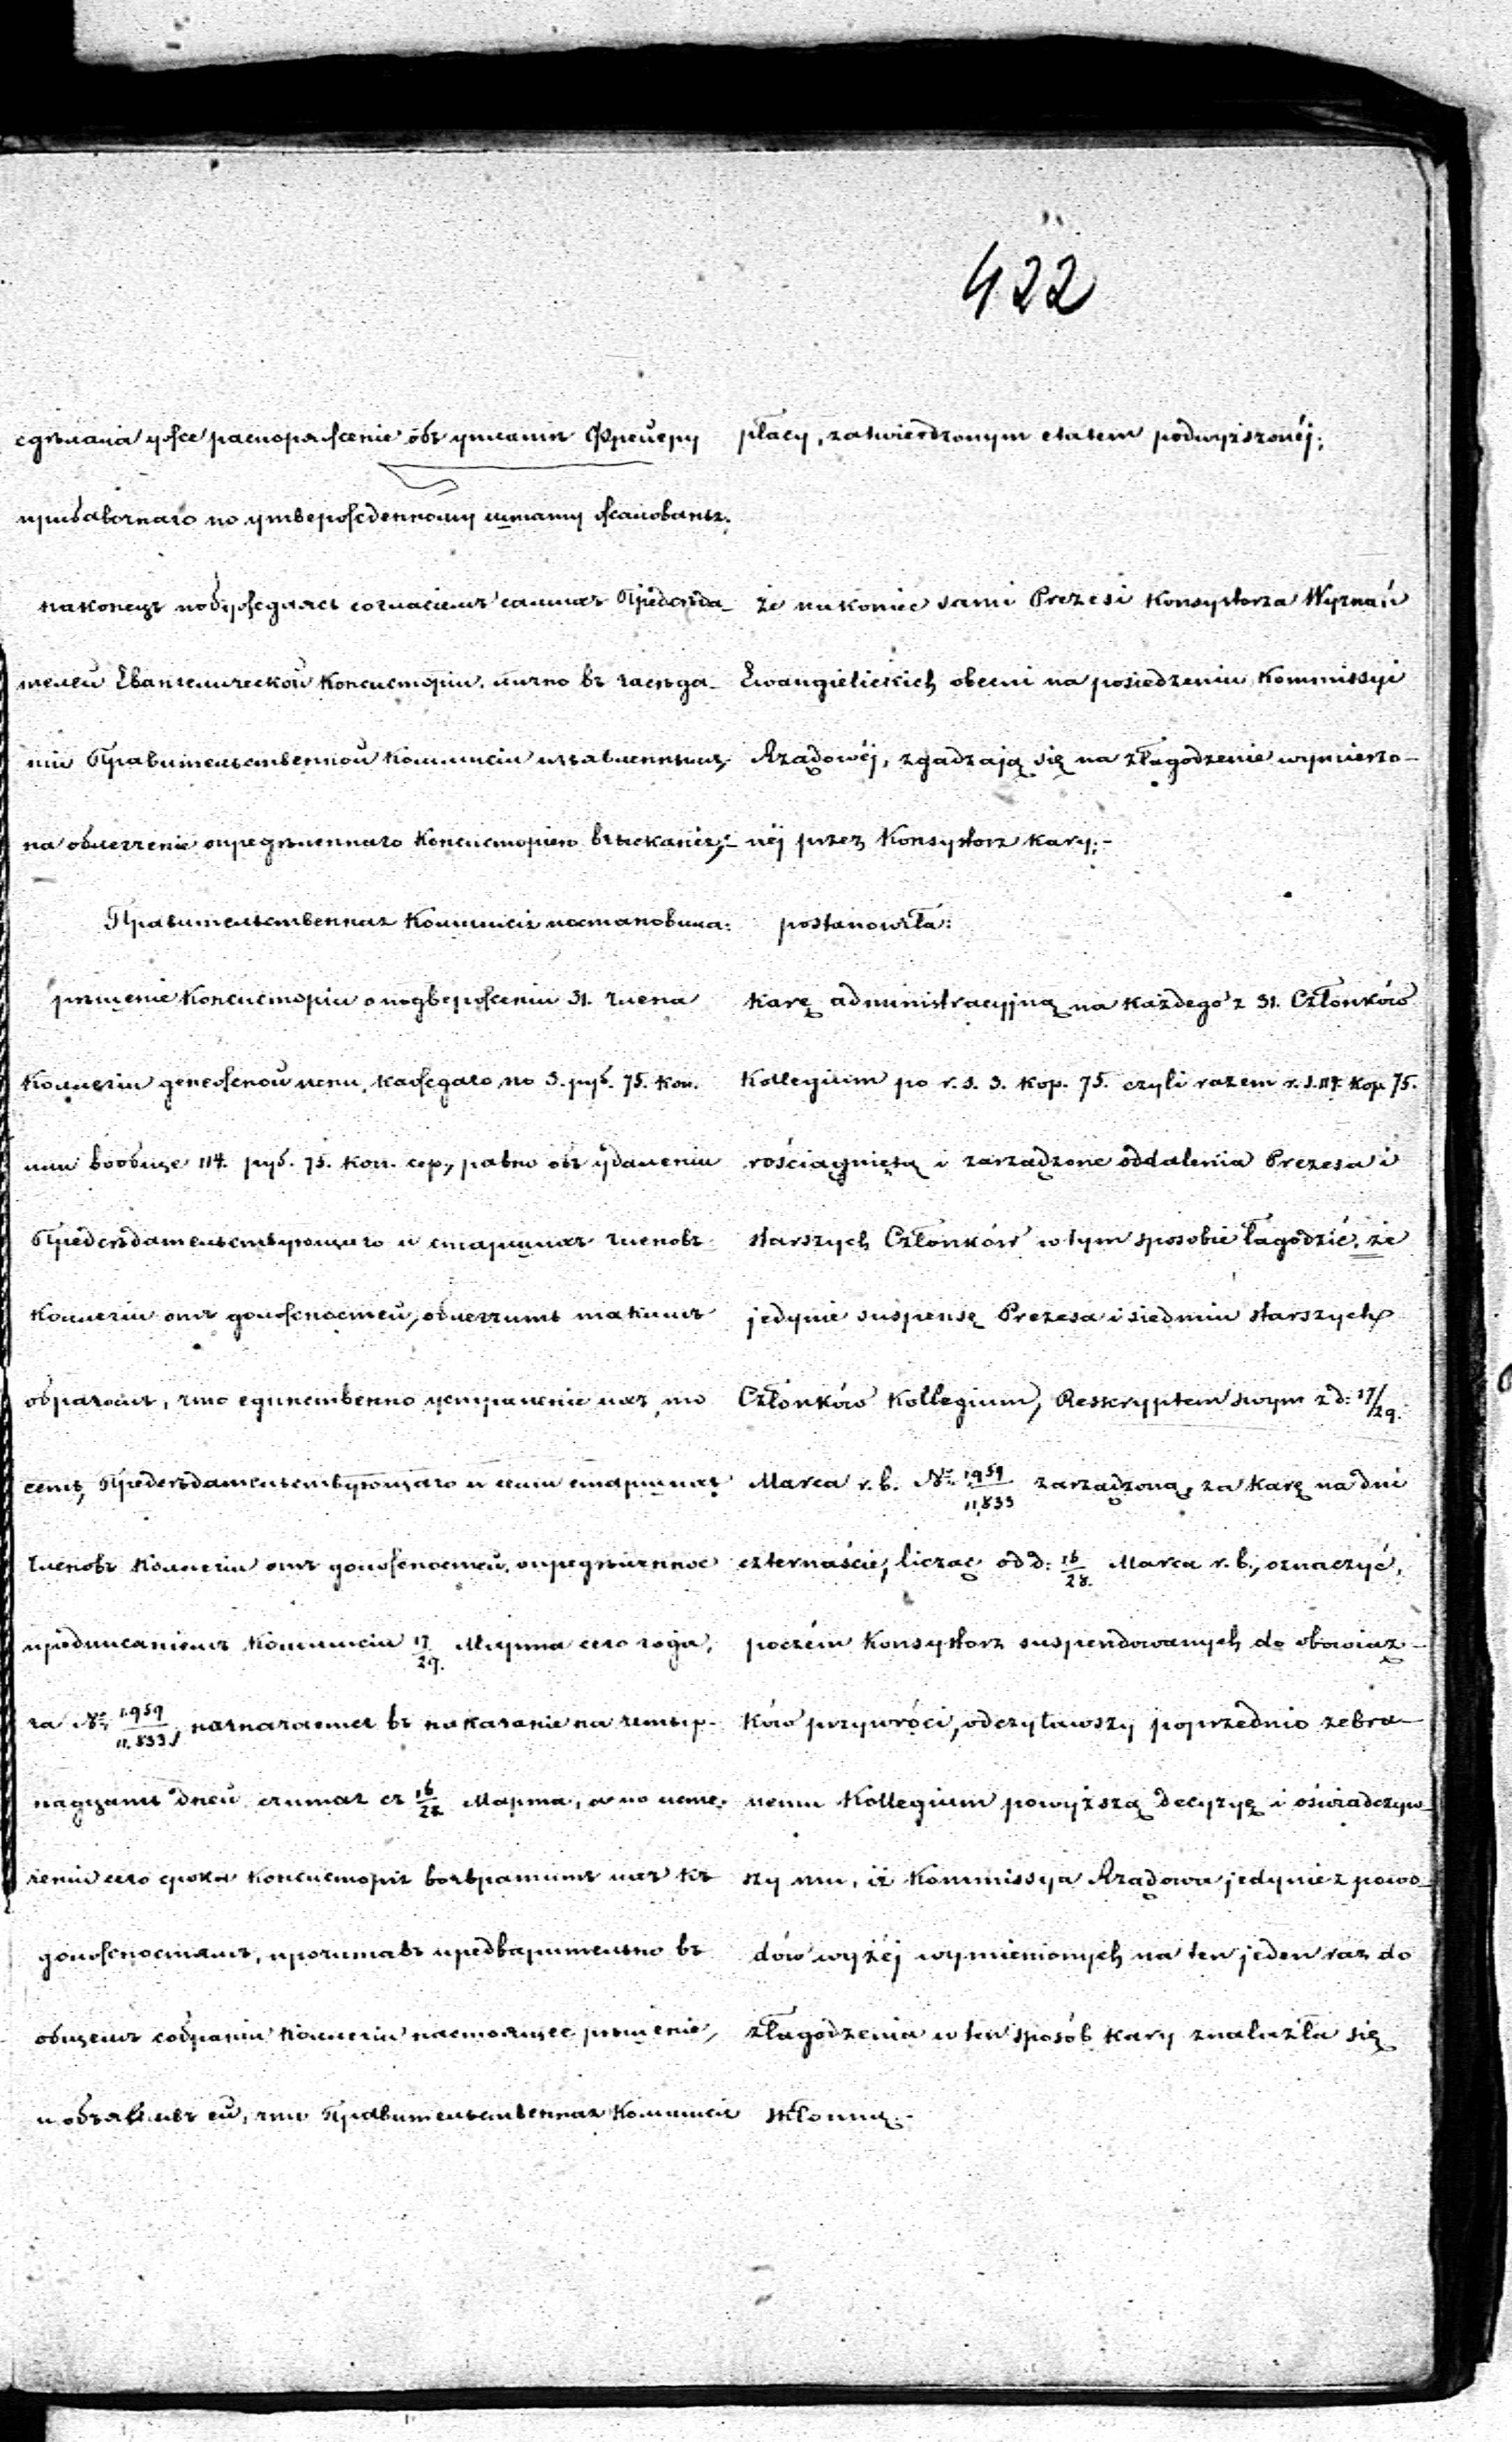 422
сдѣлала уже распоряженіе объ уплатѣ Фрецеру
прибавочнаго по утвержденному штату жалованья.
наконецъ побуждаясь согласіемъ самихъ Предсѣда-
телей Евангелической Консисторіи, лично въ засѣда-
ніи Правительственной Коммисіи изъявленнымъ,
на облегченіе опредѣленнаго Консисторіею взысканія,
Правительственная Коммисія постановила:
рѣшеніе Консисторіи о подверженіи 31. члена
Коллегіи денежной пени, каждаго по 3. руб. 75. коп.
или вообще 114. руб. 75. коп. сер., равно объ удаленіи
Предсѣдательствующаго и старшихъ членовъ
Коллегіи отъ должностей, облегчить такимъ
образомъ, что единственно устраненіе ихъ, то
есть, Предсѣдательствующаго и семи старшихъ
членовъ Коллегіи отъ должностей, опредѣленное
предписаніемъ Коммисіи 17/29. Марта сего года,
за №. 1959/11,833, назначается въ наказаніе на четыр-
надцать дней считая съ 16/28 Марта, а по исте-
ченіи сего срока Консисторія возвратитъ ихъ къ
должностямъ, прочитавъ предварительно въ
общемъ собраніи Коллегіи настоящее рѣшеніе,
и объявивъ ей, что Правительственная Коммисія
płacy, zatwierdzonym etatem podwyższonéj;
że nakoniec sami Prezesi Konsystorza Wyznań
Ewangielickich obecni na posiedzeniu Kommissyi
Rządowéj, zgadzają się na złagodzenie wymierzo-
néj przez Konsystorz kary;-
postanowiła:
karę administracyjną na każdego z 31. Członków
Kollegium po r. s. 3. kop. 75. czyli razem r. s. 114. kop. 75.
rościągniętą i zarządzone oddalenia Prezesa i
starszych Członków w tym sposobie łagodzić, że
jedynie suspensę Prezesa i siedmiu starszych
Członków Kollegium, Reskryptem swym z d: 17/29.
Marca r. b. №. 1959/11,833 zarządzoną, za karę na dni
czternaście, licząc od d: 16/28. Marca r. b., oznaczyć,
poczém Konsystorz suspendowanych do obowiąz-
ków przywróci, odczytawszy poprzednio zebra-
nemu Kollegium powyższą decyzyę i oświadczyw-
szy mu, iż Kommissya Rządowa jedynie z powo-
dów wyżéj wymienionych na ten jeden raz do
złagodzenia w ten sposób kary znalazła się
skłonną.-